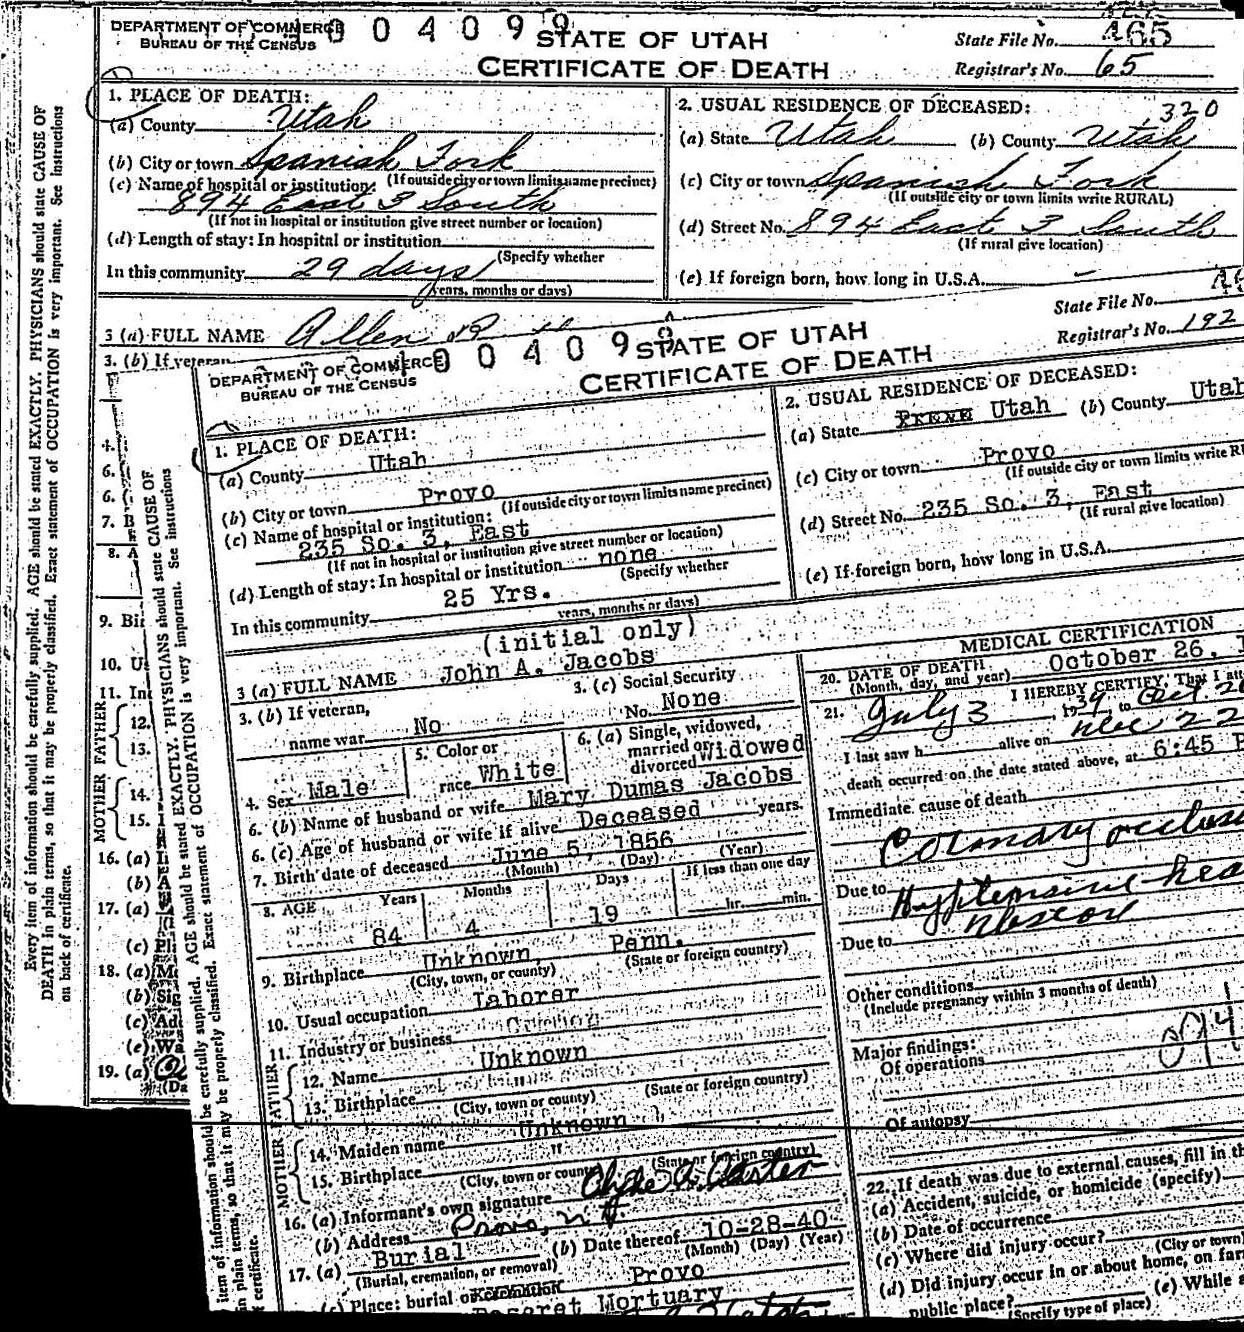 DEPARTMENT OF COMMERCE
BUREAU OF THE CENSUS
0 0 4 0 9 9
STATE OF UTAH
CERTIFICATE OF DEATH
State File No. 165
Registrar's No. 65
1. PLACE OF DEATH:
(a) County Utah
(b) City or town Spanish Fork
(If outside city or town limits name precinct)
(c) Name of hospital or institution:
894 East 3 South
(If not in hospital or institution give street number or location)
(d) Length of stay: In hospital or institution
(Specify whether
In this community 29 days
years, months or days)
2. USUAL RESIDENCE OF DECEASED:
320
(a) State Utah (b) County Utah
(c) City or town Spanish Fork
(If outside city or town limits write RURAL)
(d) Street No. 894 East 3 South
(If rural give location)
(e) If foreign born, how long in U.S.A. –
3 (a) FULL NAME Allen
3. (b) If veteran
4.
6.
6. (
7. B
8. A
9. Bir
10. Us
11. In
FATHER
12.
13.
MOTHER
14.
15.
16. (a) I
(b) A
17. (a)
(c) Pl
18. (a) M
(b) Sig
(c) Ad
(e) Wa
19. (a)
(Da
Every item of information should be carefully supplied. AGE should be stated EXACTLY. PHYSICIANS should state CAUSE OF
DEATH in plain terms, so that it may be properly classified. Exact statement of OCCUPATION is very important. See Instructions
on back of certificate.
DEPARTMENT OF COMMERCE
BUREAU OF THE CENSUS
0 0 4 0 9 9
STATE OF UTAH
CERTIFICATE OF DEATH
State File No.
Registrar's No. 192
1. PLACE OF DEATH:
(a) County Utah
(b) City or town Provo
(If outside city or town limits name precinct)
(c) Name of hospital or institution:
235 So. 3, East
(If not in hospital or institution give street number or location)
(d) Length of stay: In hospital or institution none
(Specify whether
In this community 25 Yrs.
years, months or days)
2. USUAL RESIDENCE OF DECEASED:
(a) State Utah (b) County Utah
(c) City or town Provo
(If outside city or town limits write RU
(d) Street No. 235 So. 3, East
(If rural give location)
(e) If foreign born, how long in U.S.A.
(initial only)
3 (a) FULL NAME John A. Jacobs
3. (b) If veteran,
name war No
3. (c) Social Security
No. None
4. Sex Male
5. Color or
race White
6. (a) Single, widowed,
married or
divorced Widowed
6. (b) Name of husband or wife Mary Dumas Jacobs
6. (c) Age of husband or wife if alive Deceased years.
7. Birth date of deceased June 5, 1856
(Month) (Day) (Year)
8. AGE Years Months Days If less than one day
84 4 19 hr. min.
9. Birthplace Unknown, Penn.
(City, town, or county) (State or foreign country)
10. Usual occupation Laborer
11. Industry or business
FATHER
12. Name Unknown
13. Birthplace
(City, town or county) (State or foreign country)
MOTHER
14. Maiden name Unknown
15. Birthplace "
(City, town or county) (State or foreign country)
16. (a) Informant's own signature Clyde A. Carter
(b) Address Provo, UT
17. (a) Burial (b) Date thereof 10-28-40
(Burial, cremation, or removal) (Month) (Day) (Year)
(c) Place: burial or cremation Provo
Deseret Mortuary
MEDICAL CERTIFICATION
20. DATE OF DEATH October 26, 1
(Month, day, and year)
21. I HEREBY CERTIFY, That I atte
July 3, 1939, to Oct 26
I last saw h alive on Dec 22
death occurred on the date stated above, at 6:45 P
Immediate cause of death
Coronary occlus
Due to Hypertensive hea
Due to
Other conditions
(Include pregnancy within 3 months of death)
Major findings:
Of operations
94
Of autopsy
22. If death was due to external causes, fill in th
(a) Accident, suicide, or homicide (specify)
(b) Date of occurrence
(c) Where did injury occur?
(City or town)
(d) Did injury occur in or about home, on far
public place?
(Specify type of place)
(e) While a
item of information should be carefully supplied. AGE should be stated EXACTLY. PHYSICIANS should state CAUSE OF
in plain terms, so that it may be properly classified. Exact statement of OCCUPATION is very important. See Instructions
of certificate.